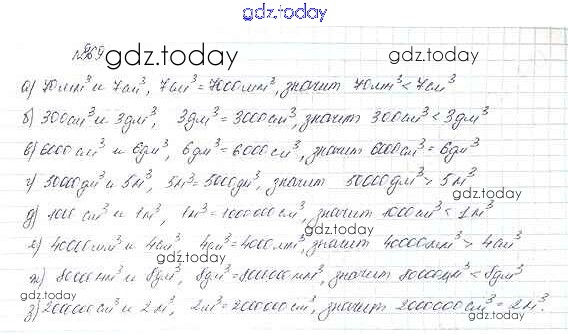 gdz.today
№869
gdz.today gdz.today
а) 70мм³ и 7см³, 7см³ = 7000мм³, значит 70мм³ < 7см³
б) 300см³ и 3дм³, 3дм³ = 3000см³, значит 300см³ < 3дм³
в) 6000см³ и 6дм³, 6дм³ = 6000см³, значит 6000см³ = 6дм³
г) 50000дм³ и 5м³, 5м³ = 5000дм³, значит 50000дм³ > 5м³
gdz.today
д) 1000см³ и 1м³, 1м³ = 1000000см³, значит 1000см³ < 1м³
е) 40000мм³ и 4см³, 4см³ = 4000мм³, значит 40000мм³ > 4см³
gdz.today
ж) 80000мм³ и 8дм³, 8дм³ = 8000000мм³, значит 80000мм³ < 8дм³
gdz.today gdz.today
з) 2000000см³ и 2м³, 2м³ = 2000000см³, значит 2000000см³ = 2м³.